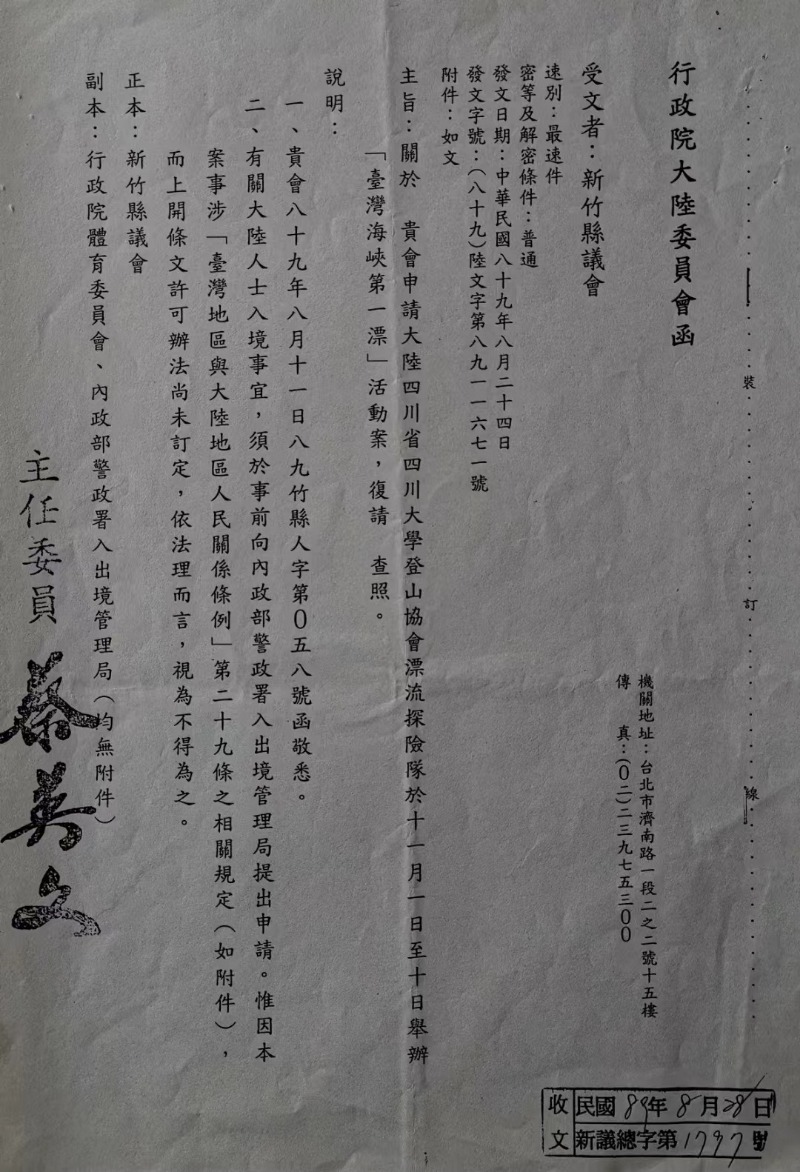 行政院大陸委員會函
機關地址：台北市濟南路一段二之二號十五樓
傳　真：(０二)二三九七五三００
受文者：新竹縣議會
速別：最速件
密等及解密條件：普通
發文日期：中華民國八十九年八月二十四日
發文字號：(八十九)陸文字第八九一一六七一號
附件：如文
主旨：關於　貴會申請大陸四川省四川大學登山協會漂流探險隊於十一月一日至十日舉辦
「臺灣海峽第一漂」活動案，復請　查照。
說明：
一、貴會八十九年八月十一日八九竹縣人字第０五八號函敬悉。
二、有關大陸人士入境事宜，須於事前向內政部警政署入出境管理局提出申請。惟因本
案事涉「臺灣地區與大陸地區人民關係條例」第二十九條之相關規定(如附件)，
而上開條文許可辦法尚未訂定，依法理而言，視為不得為之。
正本：新竹縣議會
副本：行政院體育委員會、內政部警政署入出境管理局(均無附件)
主任委員 蔡英文
裝
訂
線
收文
民國89年8月28日
新議總字第1797號